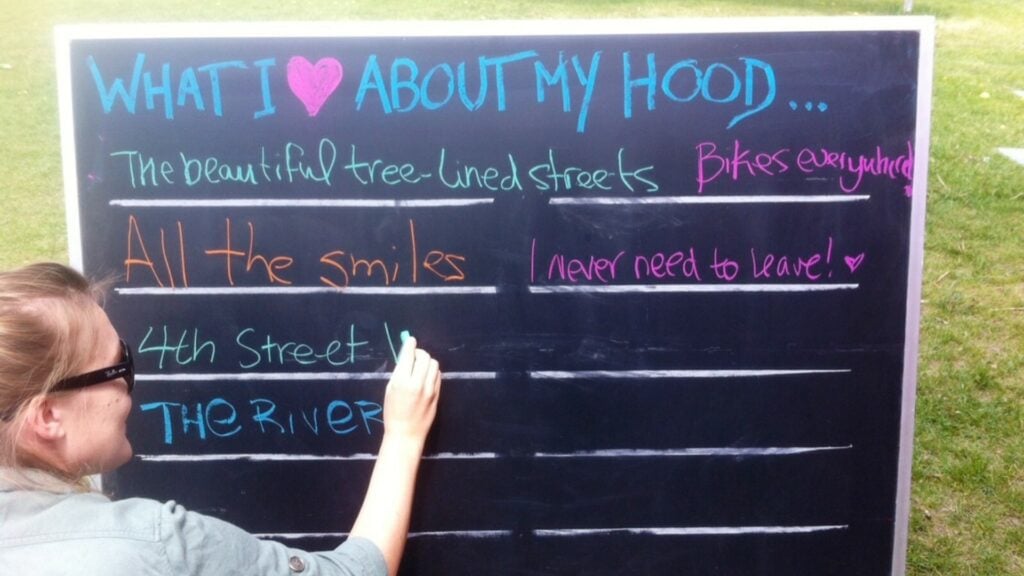 WHAT I ♥ ABOUT MY HOOD...
The beautiful tree-lined streets
Bikes everywhere
All the smiles
I never need to leave! ♥
4th Street
THE RIVER